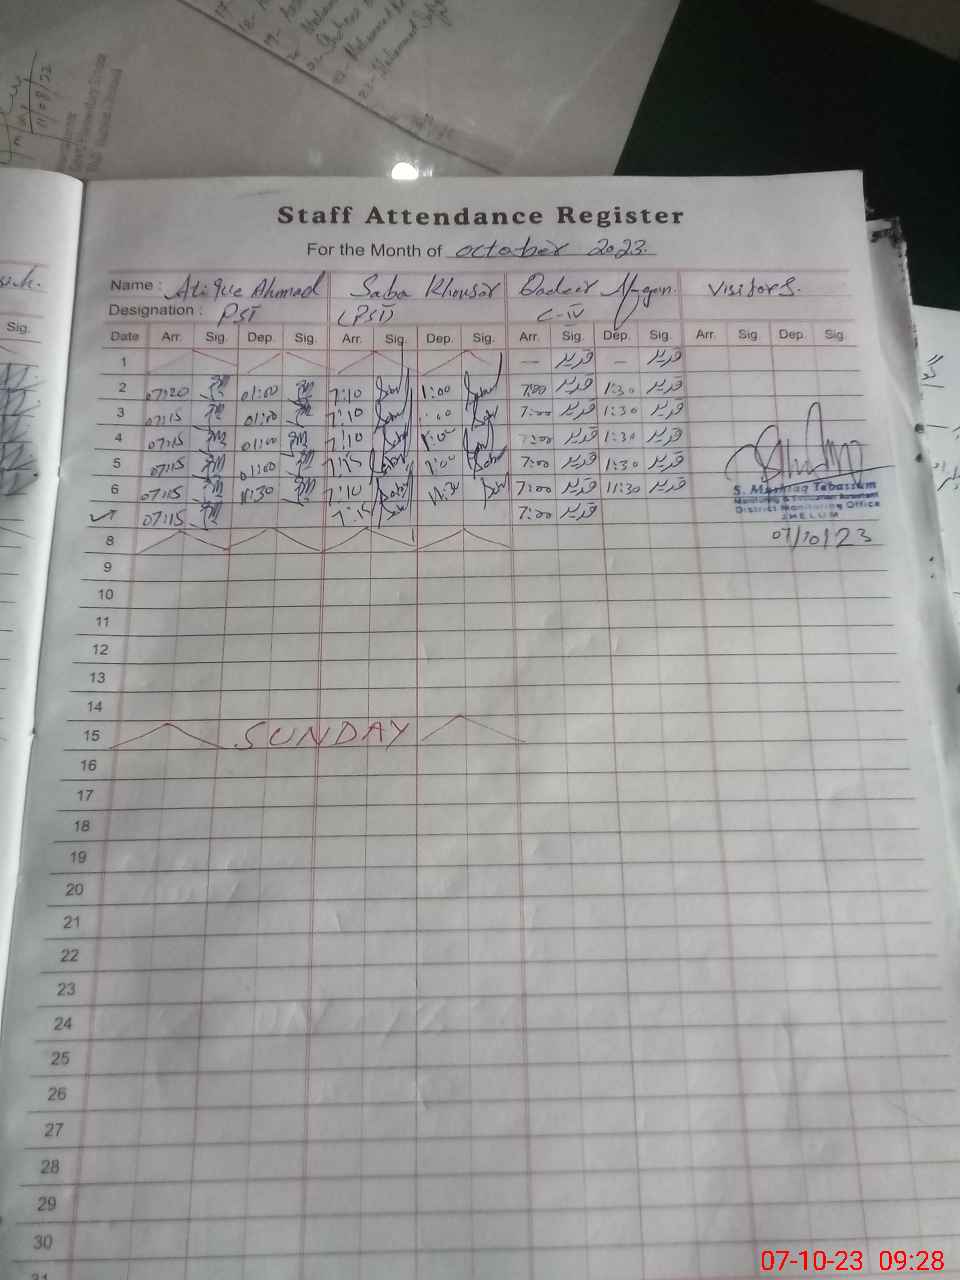 11/08/22
Staff Attendance Register
For the Month of October 2023.
Name : Atique Ahmad Saba Khousar Qadeer Visitors.
Designation : PST PST C-IV
Sig.
Date Arr. Sig. Dep. Sig. Arr. Sig. Dep. Sig. Arr. Sig. Dep. Sig. Arr. Sig. Dep. Sig.
1 — قدیر — قدیر
2 07:20 01:00 7:10 Saba 1:00 Saba 7:00 قدیر 1:30 قدیر
3 07:15 01:00 7:10 Saba 1:00 Saba 7:00 قدیر 1:30 قدیر
4 07:15 01:00 7:10 Saba 1:00 Saba 7:00 قدیر 1:30 قدیر
5 07:15 01:00 7:15 Saba 1:00 Saba 7:00 قدیر 1:30 قدیر
6 07:15 11:30 7:10 Saba 11:30 Saba 7:00 قدیر 11:30 قدیر
07:15 7:15 Saba 7:00 قدیر
S. Mushtaq Tabassum
Monitoring & Evaluation Assistant
District Monitoring Office
JHELUM
07/10/23
8
9
10
11
12
13
14
15 SUNDAY
16
17
18
19
20
21
22
23
24
25
26
27
28
29
30
31
07-10-23 09:28